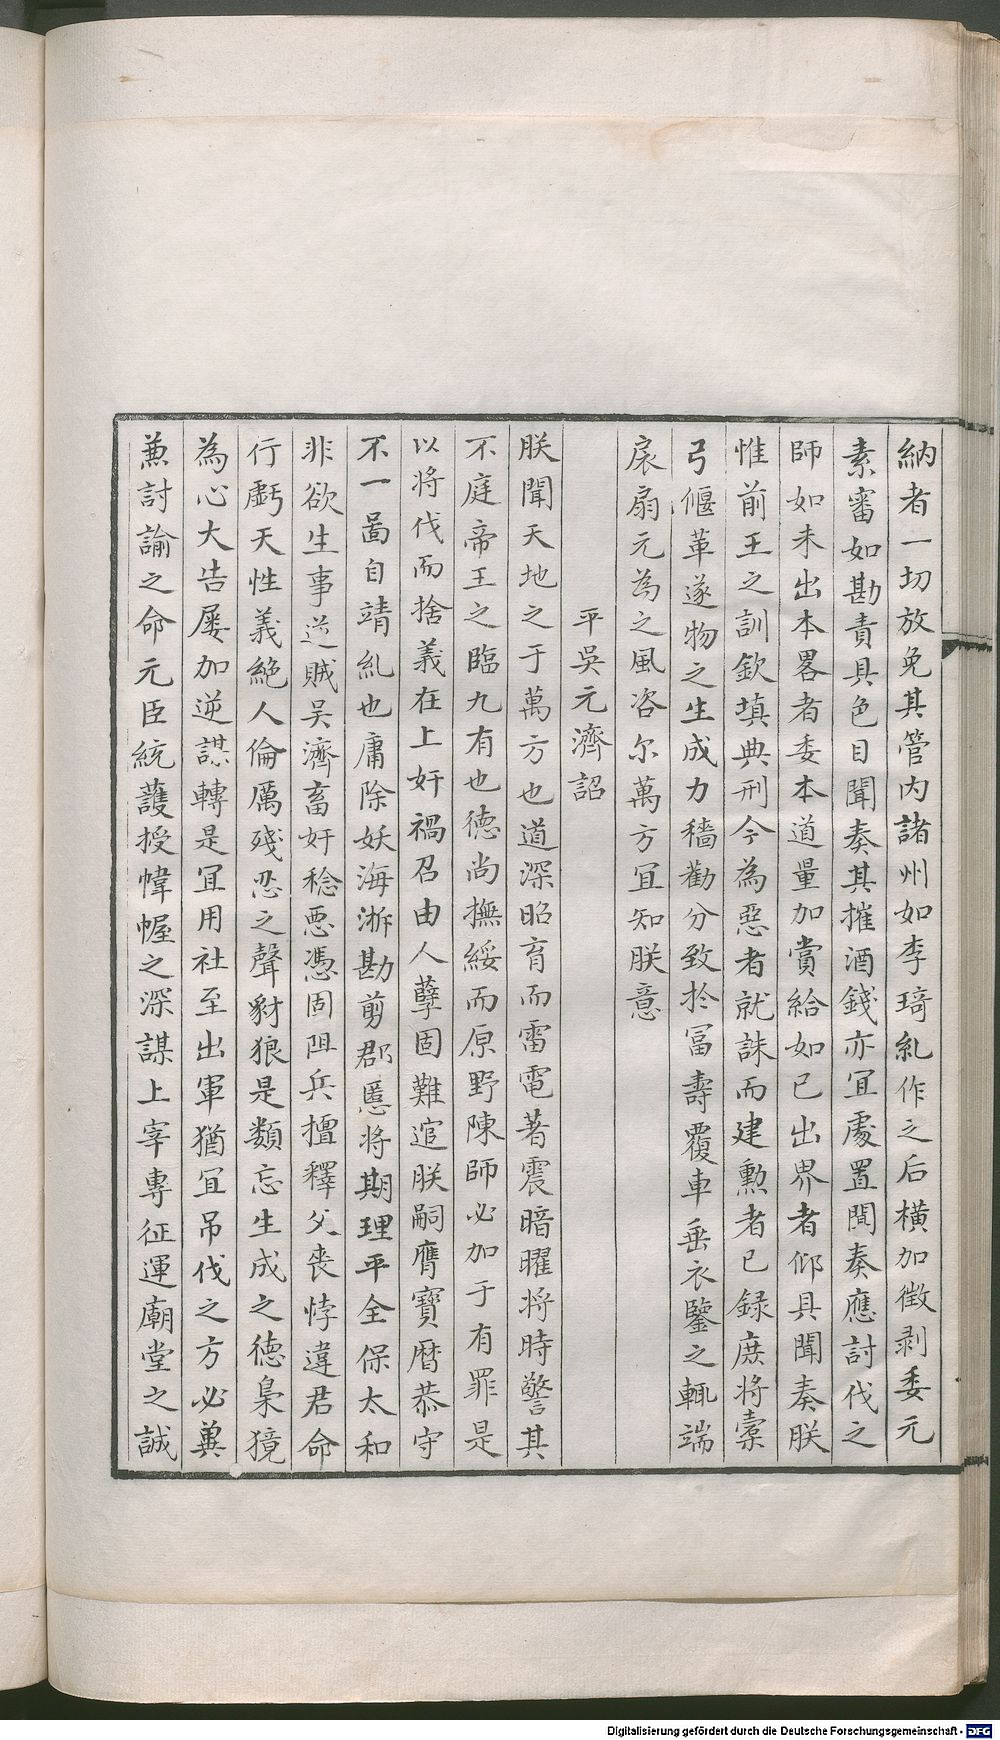 納者一切放免其管内諸州如李琦乱作之后橫加徵剥委元
素審如勘責具色目聞奏其摧酒錢亦宜處置聞奏應討伐之
師如未出本畧者委本道量加賞給如已出界者仰具聞奏朕
惟前王之訓欽填典刑今為惡者就誅而建勲者已録庶将櫜
弓偃革遂物之生成力穡勸分致於冨壽覆車垂衣鑒之輒端
扆扇元為之風咨尔萬方宜知朕意
平吳元濟詔
朕聞天地之于萬方也道深昭育而雷電著震暗曜将時警其
不庭帝王之臨九有也徳尚撫綏而原野陳師必加于有罪是
以将伐而捨義在上奸禍召由人孽固難逭朕嗣膺寶曆恭守
不一啚自靖乱也庸除妖海浙勘剪郡慝将期理平全保太和
非欲生事逆賊吴濟畜奸稔悪憑固阻兵擅釋父丧悖違君命
行虧天性義絶人倫厲殘忍之聲豺狼是類忘生成之徳梟獍
為心大告屡加逆謀轉是宜用社至出軍猶宜吊伐之方必兾
兼討諭之命元臣統護授幃幄之深謀上宰專征運廟堂之誠
Digitalisierung gefördert durch die Deutsche Forschungsgemeinschaft - DFG